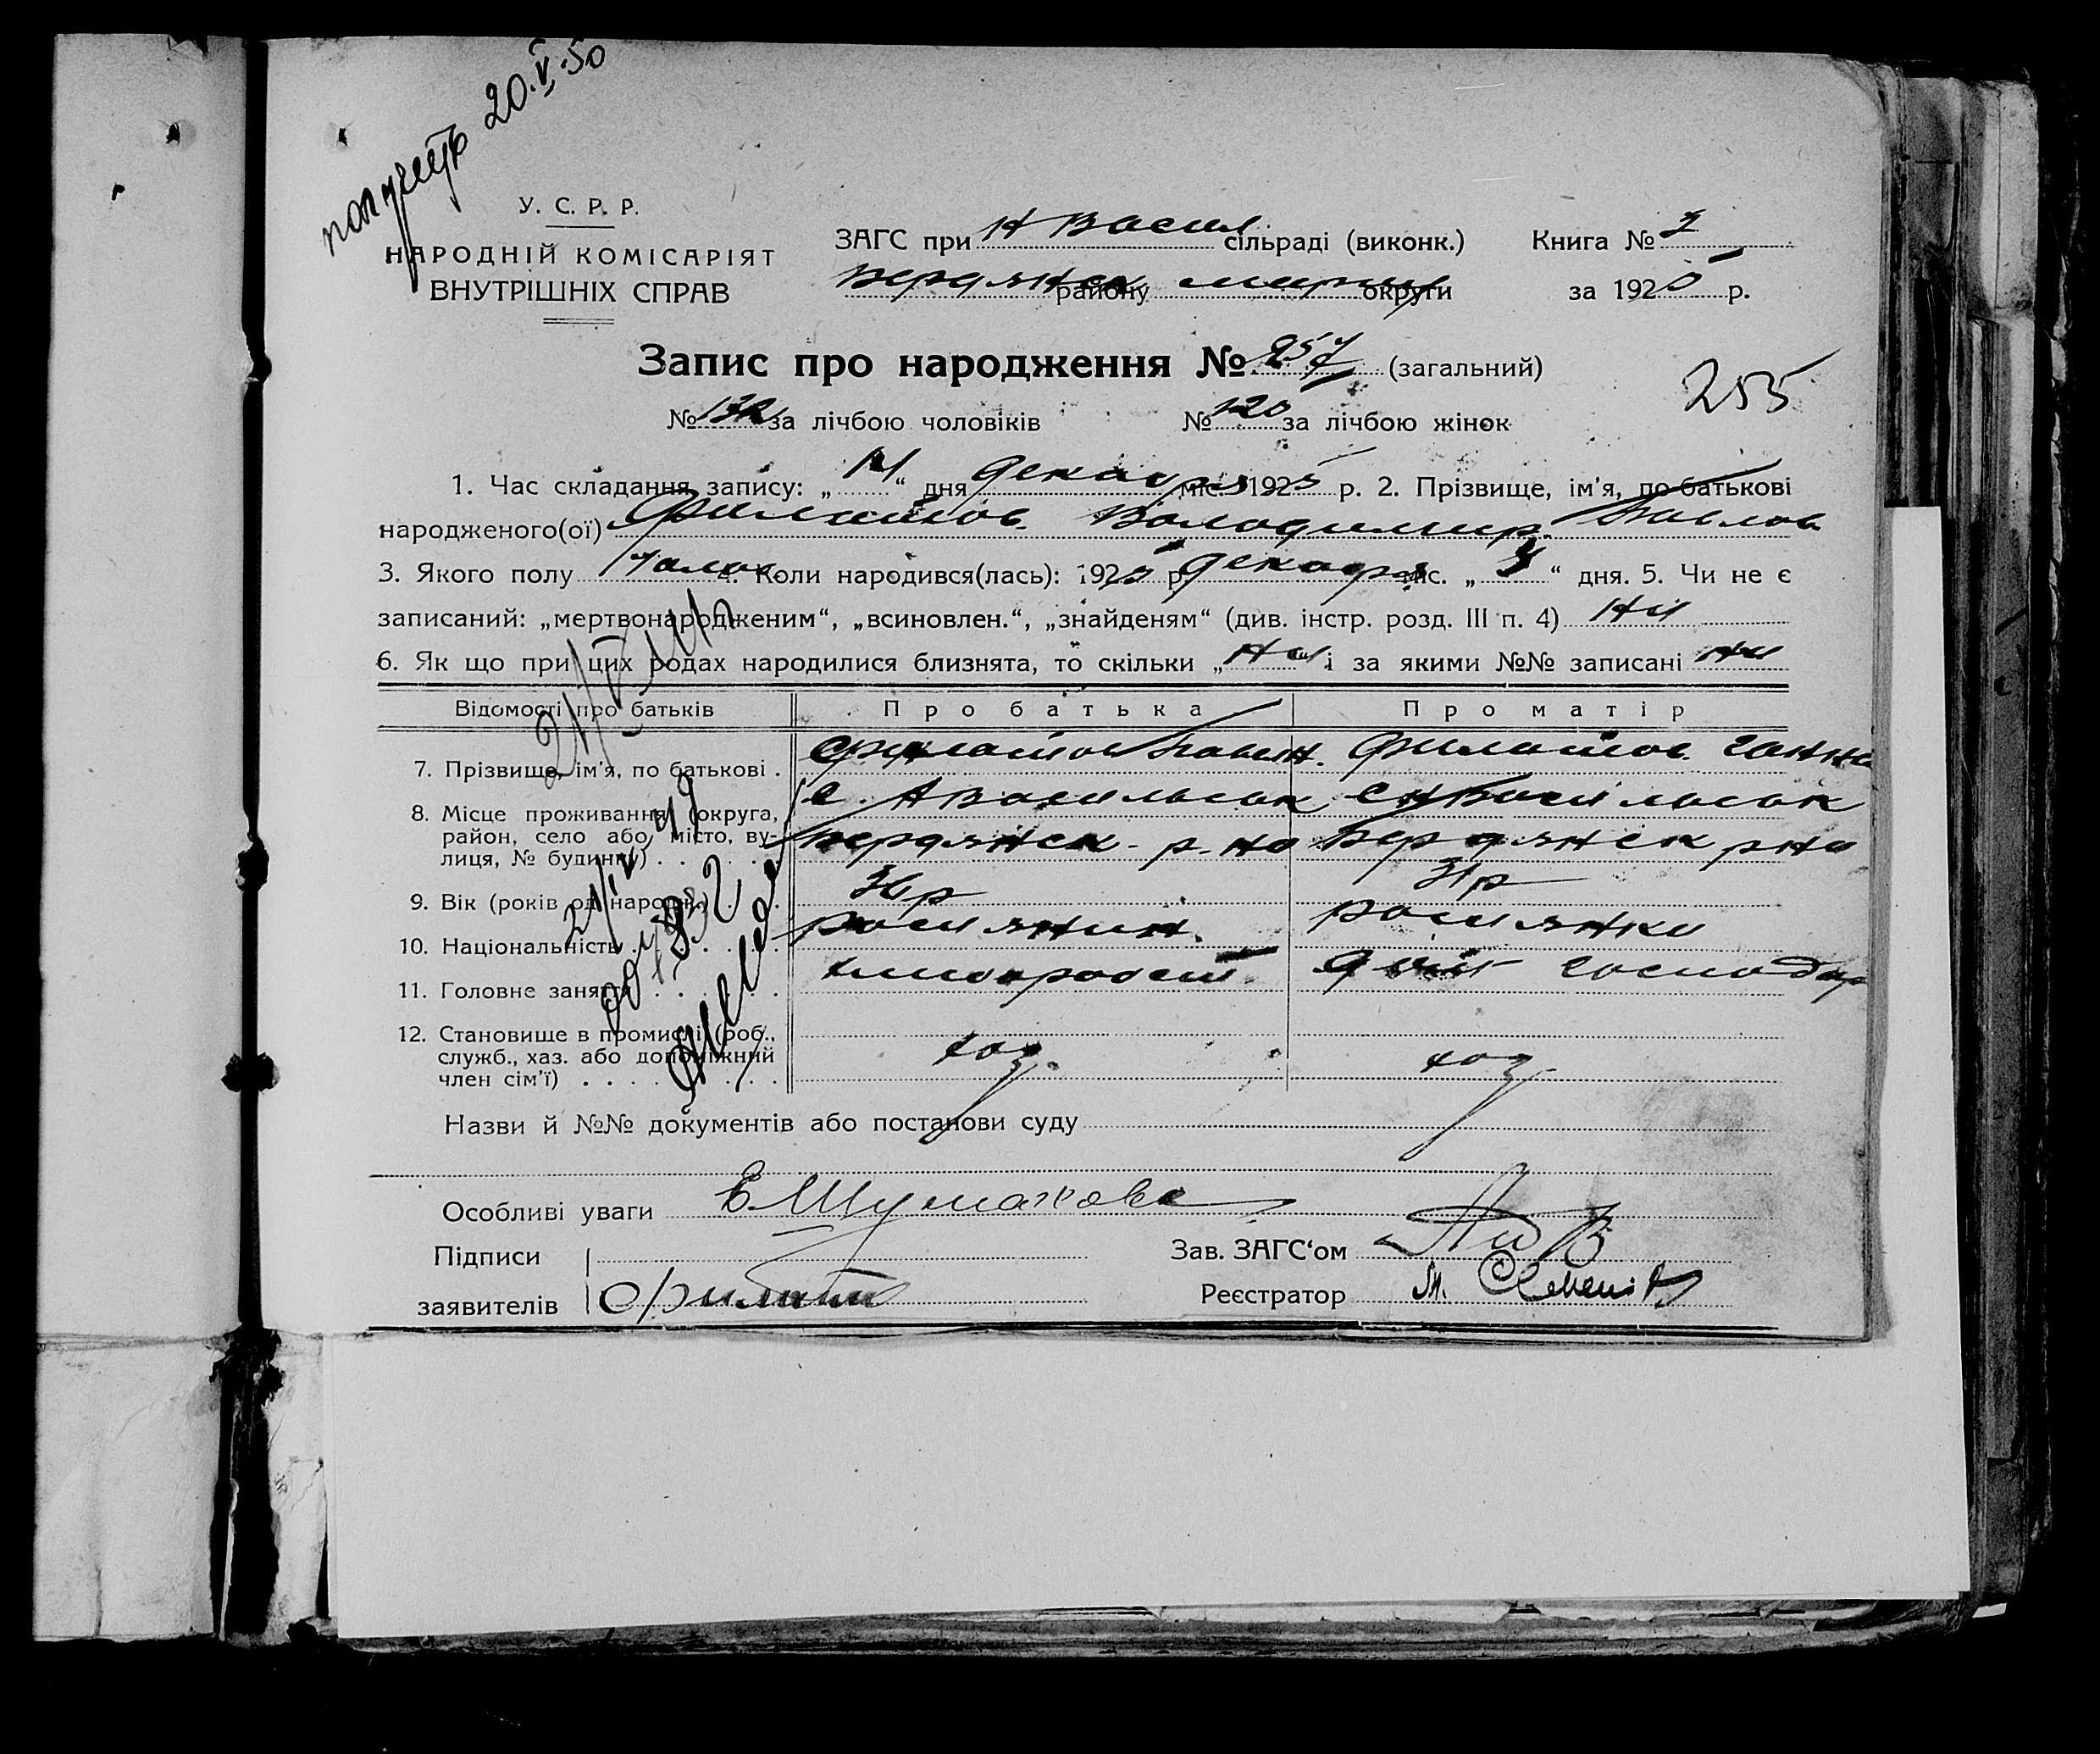 получить 20.V.50
У. С. Р. Р.
НАРОДНІЙ КОМІСАРІЯТ
ВНУТРІШНІХ СПРАВ
ЗАГС при Н Васил сільраді (виконк.) Книга № 2
Бердянск району округи за 1925 р.
Запис про народження № 257 (загальний)
255
№ за лічбою чоловіків № 120 за лічбою жінок
1. Час складання запису: „14“ дня декабря міс. 1925 р. 2. Прізвище, ім'я, по-батькові
народженого(ої) Филатов Володимир Павлов
3. Якого полу 4. Коли народився(лась): 1925 р. декабря міс. „ “ дня. 5. Чи не є
записаний: „мертвонародженим“, „всиновлен.“, „знайденям“ (див. інстр. розд. III п. 4) ни
6. Як що при цих родах народилися близнята, то скільки „ни“ і за якими №№ записані ни
Відомості про батьків Про батька Про матір
7. Прізвище, ім'я, по батькові . Филатов Павл. Филатов. Ганна
8. Місце проживання (округа, район, село або місто, вулиця, № будинку) . . . с. Н Васильевск с Н Васильевск
Бердянск р-на Бердянск р на
9. Вік (років од народж.) . . 31 р
10. Національність . . . . росиянин. росиянки
11. Головне заняття . . . . хлебороб господар
12. Становище в промислі (роб., служб., хаз. або допоміжний член сім'ї) . . . . хоз. хоз.
Назви й №№ документів або постанови суду
Особливі уваги Е Шумахова
Підписи Зав. ЗАГС'ом
заявителів Филатов Реєстратор М.